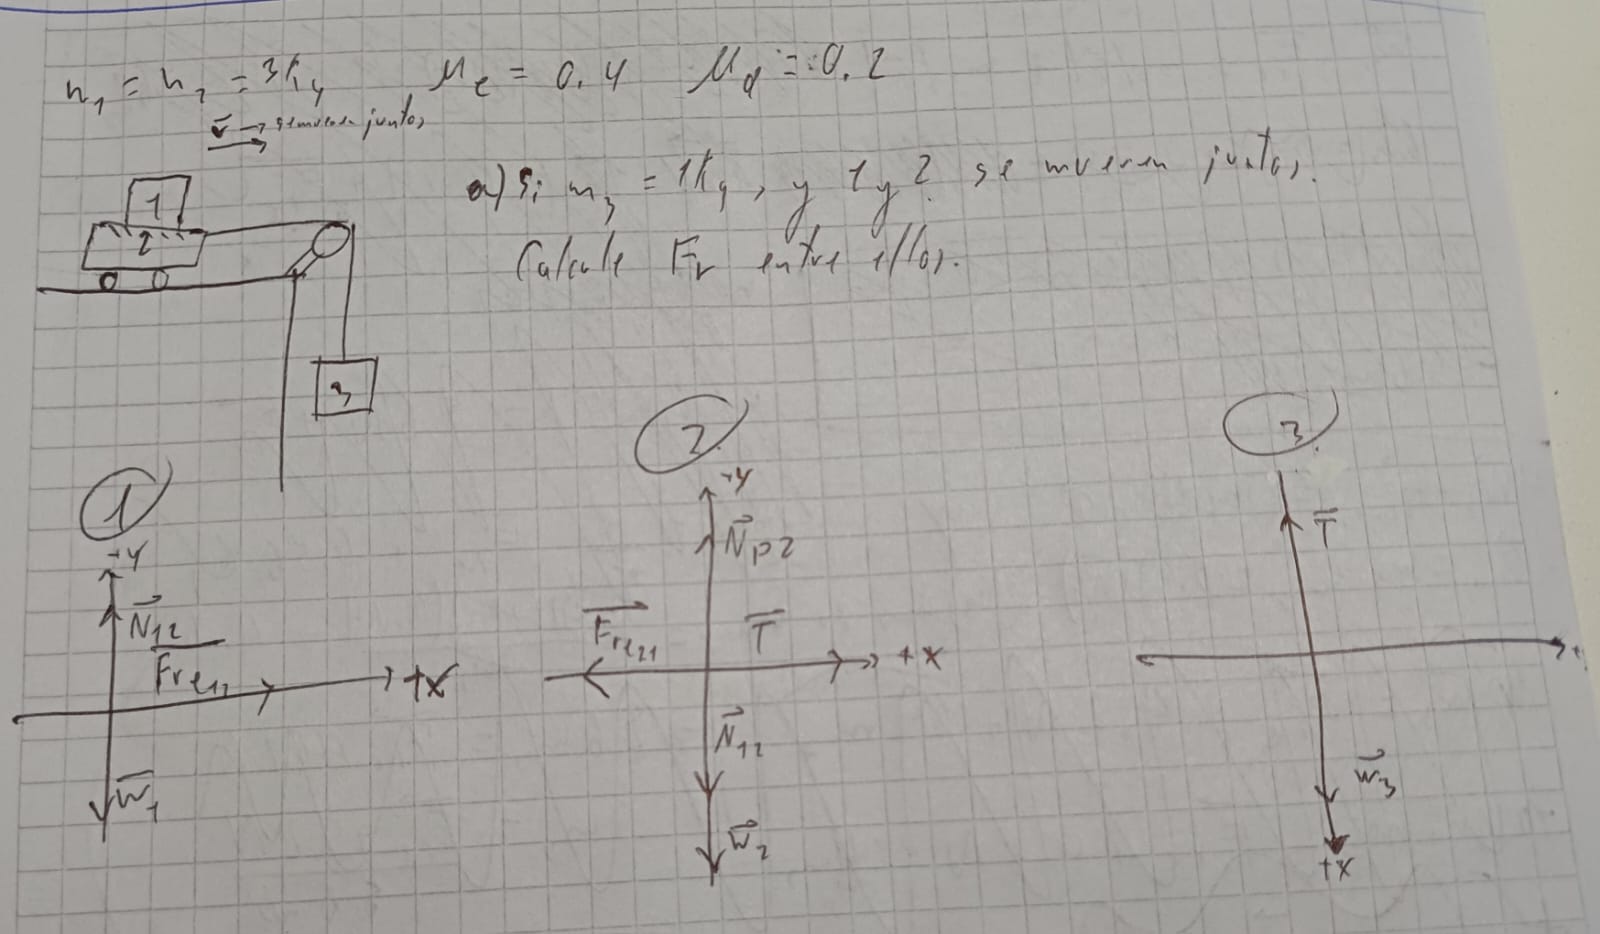 m₁ = m₂ = 3kg μe = 0.4 μd = 0.2
v → se mueven juntos
a) Si m₃ = 1kg, y 1 y 2 se mueven juntos.
Calcule Fr entre ellos.
1
2
3
1
+Y
N12
Fre12
+X
W1
2
+Y
Np2
Fre21
T
+X
N12
W2
3
T
W3
+X